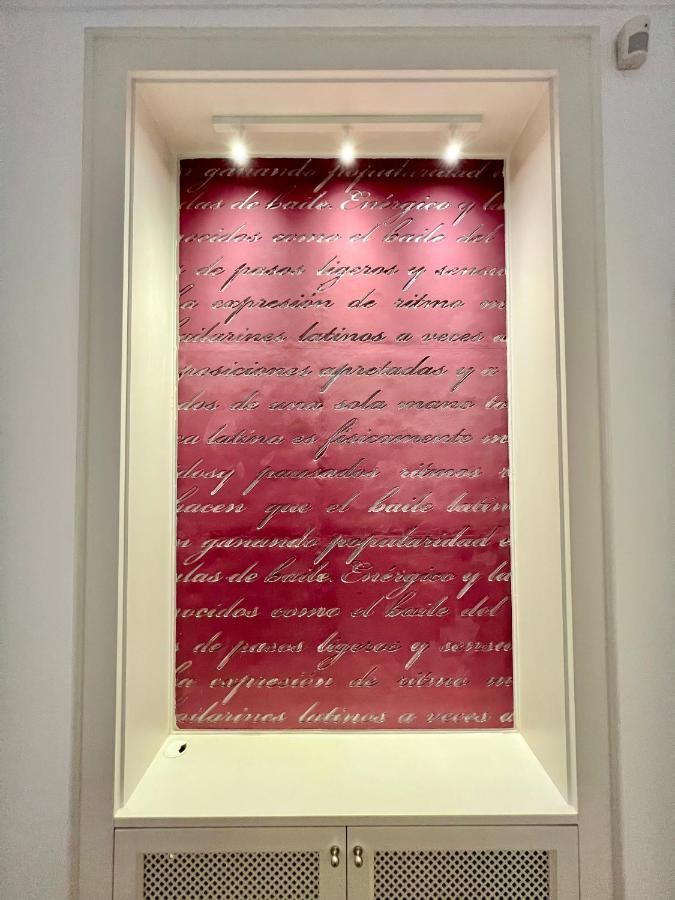 ganando popularidad
las de baile. Enérgico y la
ocidos como el baile del
de pasos ligeros y sensu
la expresión de ritmo m
ailarines latinos a veces a
posiciones apretadas y a
dos de una sola mano to
ca latina es físicamente m
idosy pausados ritmos
hacen que el baile latin
n ganando popularidad e
ulas de baile. Enérgico y la
nocidos como el baile del
s de pasos ligeros y sensu
la expresión de ritmo m
ailarines latinos a veces a